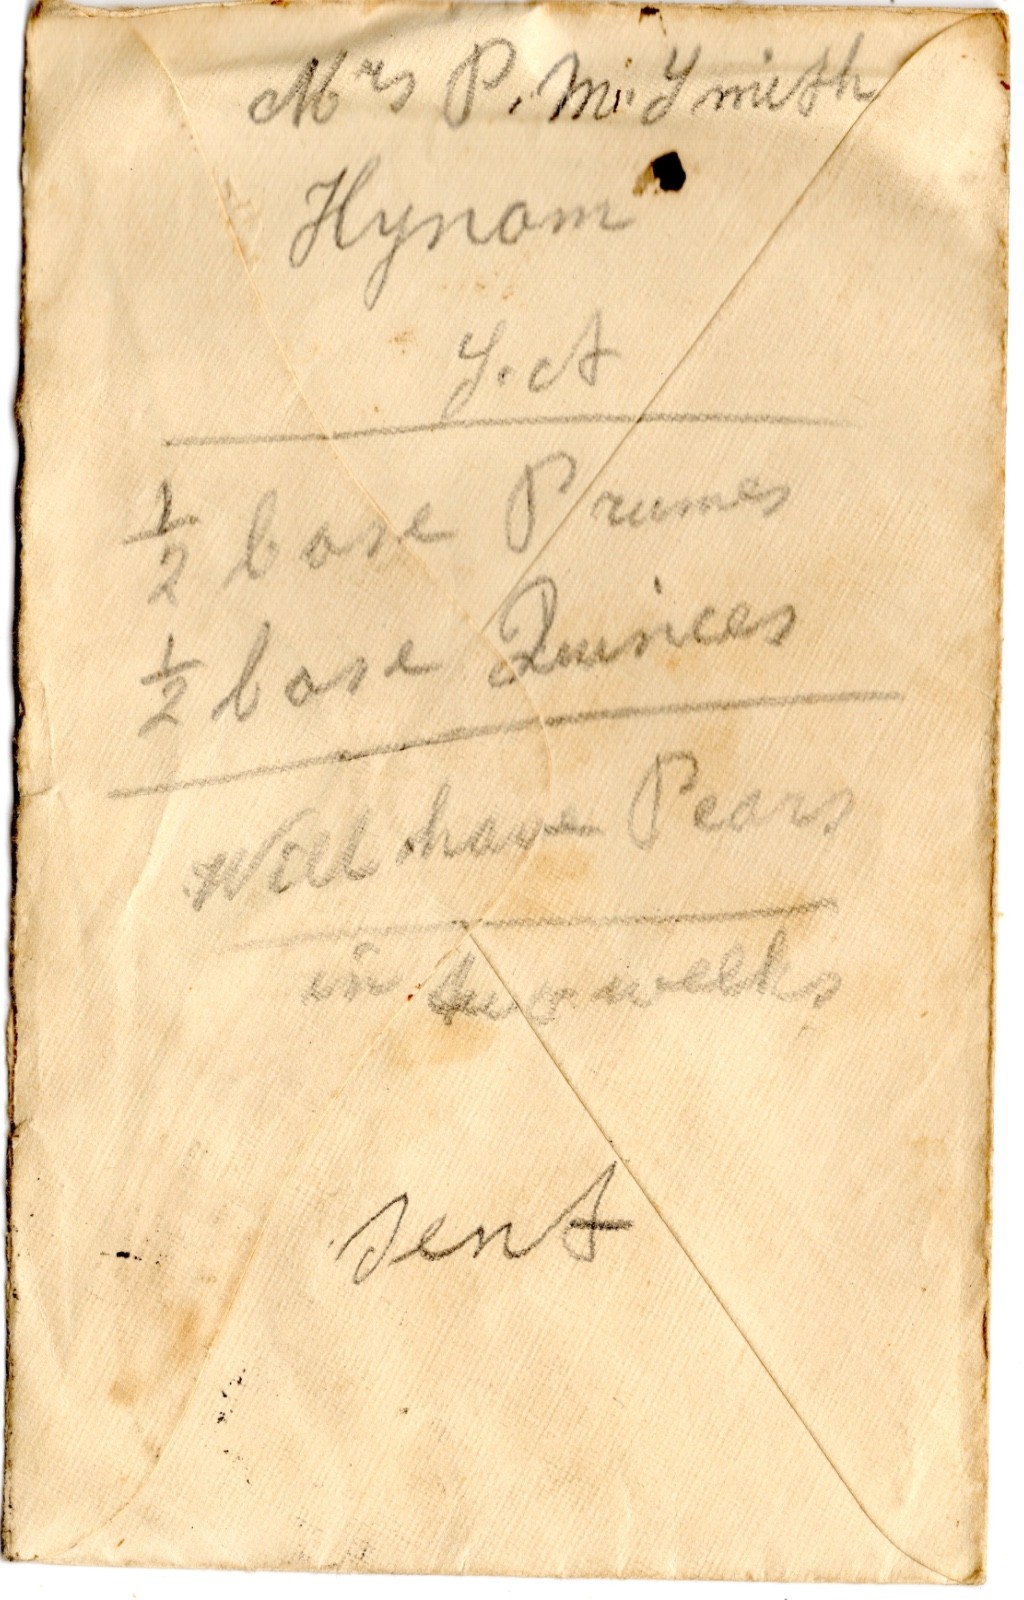 Mrs P. M. Smith
Hynam
S. A
½ case Prunes
½ case Quinces
Will have Pears
in two weeks
sent